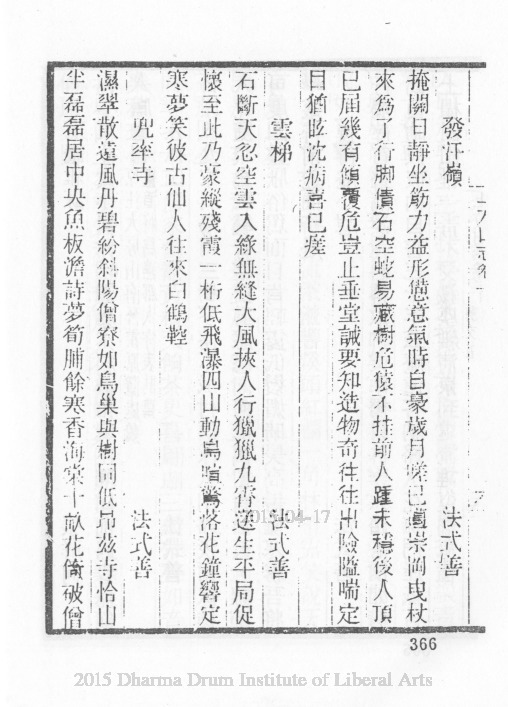 發汗嶺 法式善
掩關日靜坐筋力益形憊意氣時自豪歲月嗟已邁崇岡曳杖
來爲了行脚債石空蛇易藏樹危猿不挂前人踵未穩後人頂
已屆幾有傾覆危豈止垂堂誡要知造物奇往往出險隘喘定
目猶眩沈病喜已瘥
雲梯 法式善
石斷天忽空雲入綠無縫大風挾人行獵獵九霄送生平局促
懷至此乃豪縱殘霞一桁低飛瀑四山動鳥喧驚落花鐘響定
寒夢笑彼古仙人往來白鶴鞚
兜率寺 法式善
濕翠散遠風丹碧紛斜陽僧寮如鳥巢與樹同低昂茲寺恰山
半磊磊居中央魚板澹詩夢筍脯餘寒香海棠十畝花倚破僧
366
2015-04-17
2015 Dharma Drum Institute of Liberal Arts